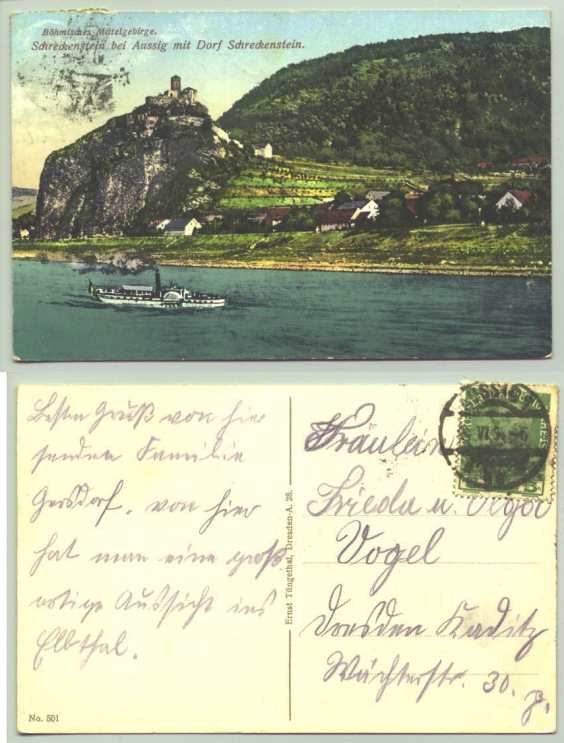 Böhmisches Mittelgebirge.
Schreckenstein bei Aussig mit Dorf Schreckenstein.
Besten Gruß von hier
senden Familie
Gersdorf, von hier
hat man eine groß
artige Aussicht ins
Elbthal.
Ernst Tüngethal, Dresden-A. 28.
No. 501
Fräulein
Frieda u.
Vogel
Dresden Kaditz
Wächterstr. 30.